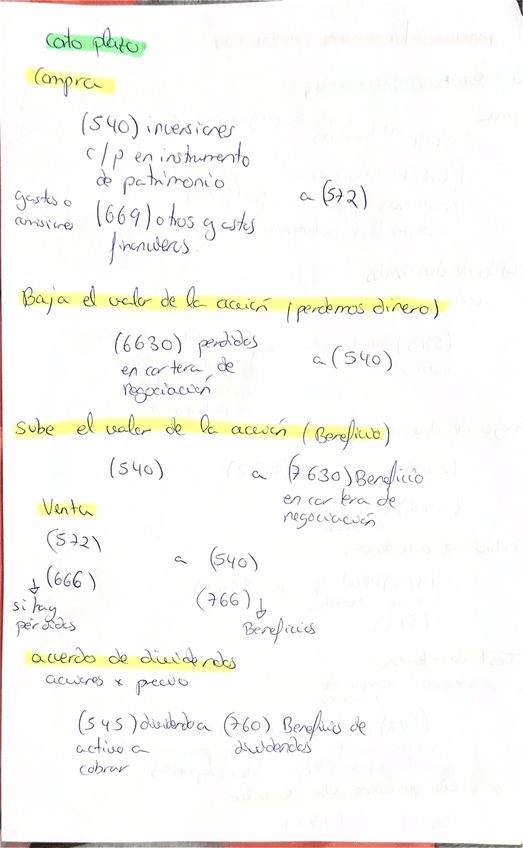 corto plazo
Compra
(540) inversiones
c/p en instrumento
de patrimonio
a (572)
gastos o
comisiones
(669) otros gastos
financieros.
Baja el valor de la acción (perdemos dinero)
(6630) perdidas
en cartera de
negociación
a (540)
Sube el valor de la acción (Beneficio)
(540) a (7630) Beneficio
en cartera de
negociación
Venta
(572) a (540)
(666) (766)
si hay
pérdidas
Beneficios
acuerdo de dividendos
acciones x precio
(545) dividendo a (760) Beneficios de
activo a dividendos
cobrar